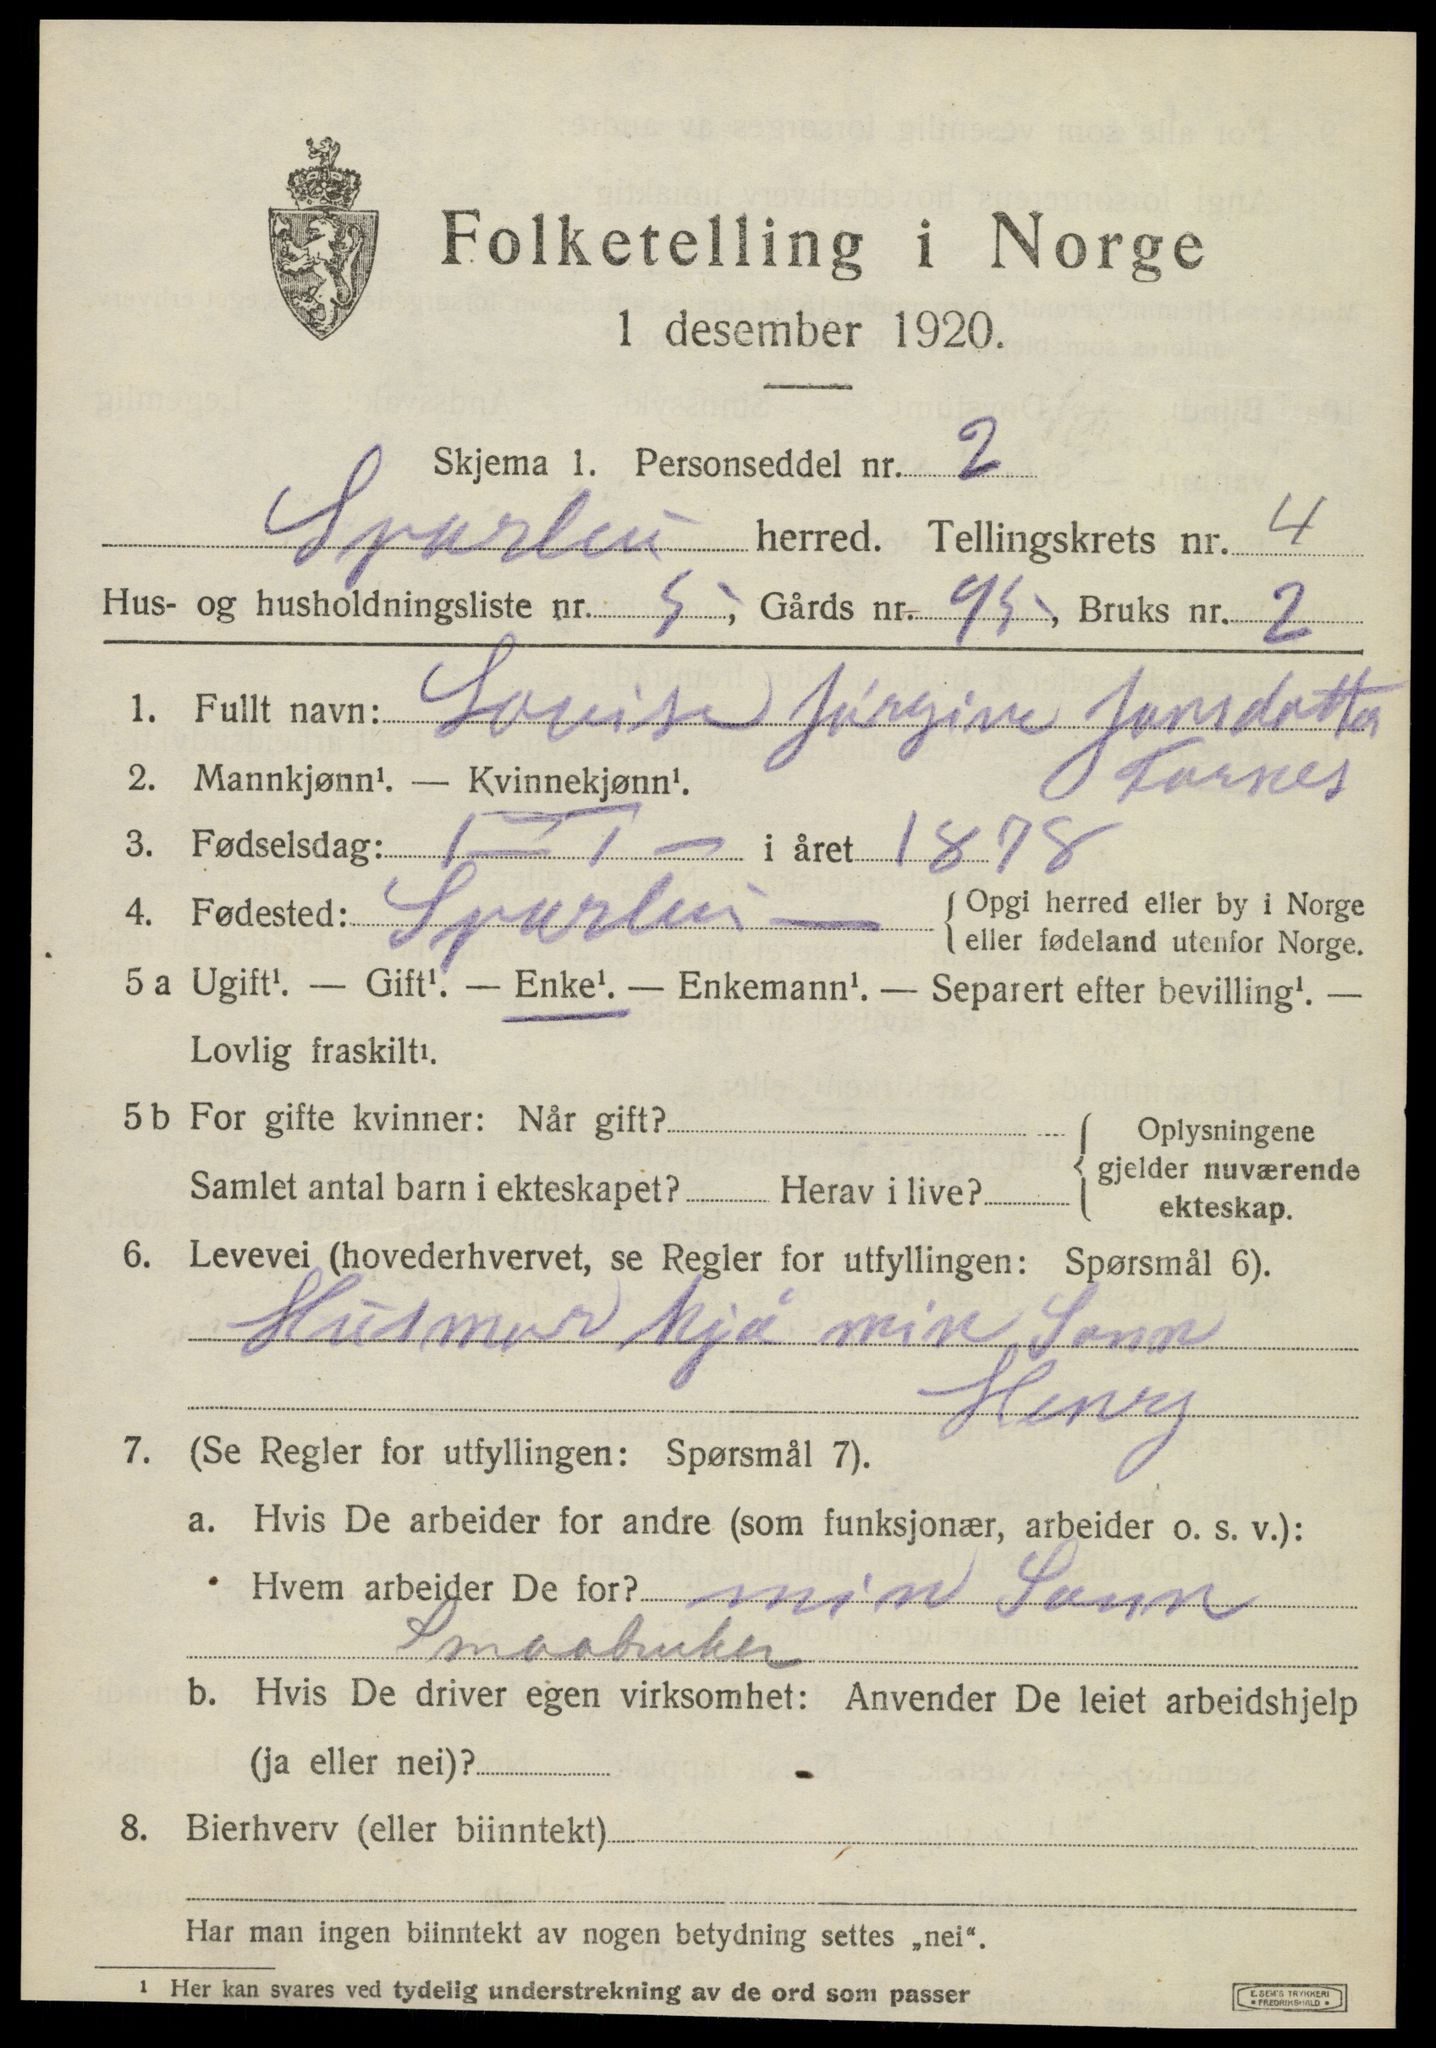 Folketelling i Norge
1 desember 1920.
Skjema 1. Personseddel nr. 2
Sparbu herred. Tellingskrets nr. 4
Hus- og husholdningsliste nr. 5, Gårds nr. 95, Bruks nr. 2
1. Fullt navn: Lovise Jørgine Jonsdotter
2. Mannkjønn¹. — Kvinnekjønn¹.
3. Fødselsdag: 1 — 1 — i året 1878
4. Fødested: Sparbu — { Opgi herred eller by i Norge
eller fødeland utenfor Norge.
5 a Ugift¹. — Gift¹. — Enke¹. — Enkemann¹. — Separert efter bevilling¹. —
Lovlig fraskilt¹.
5 b For gifte kvinner: Når gift? { Oplysningene
gjelder nuværende
ekteskap.
Samlet antal barn i ekteskapet? Herav i live?
6. Levevei (hovederhvervet, se Regler for utfyllingen: Spørsmål 6).
Husmor hjå min Sonn
Henry
7. (Se Regler for utfyllingen: Spørsmål 7).
a. Hvis De arbeider for andre (som funksjonær, arbeider o. s. v.):
Hvem arbeider De for? min Sonn
Smaabruker
b. Hvis De driver egen virksomhet: Anvender De leiet arbeidshjelp
(ja eller nei)?
8. Bierhverv (eller biinntekt)
Har man ingen biinntekt av nogen betydning settes „nei“.
¹ Her kan svares ved tydelig understrekning av de ord som passer
E. SEM'S TRYKKERI
FREDRIKSHALD